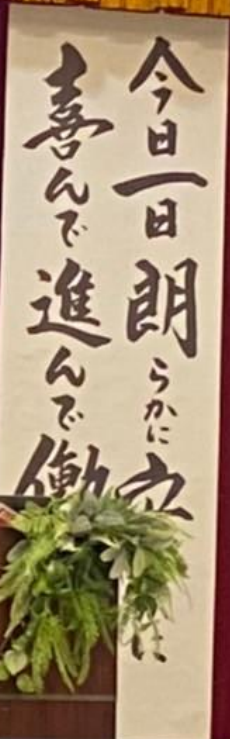 今日一日朗らかに
喜んで進んで働